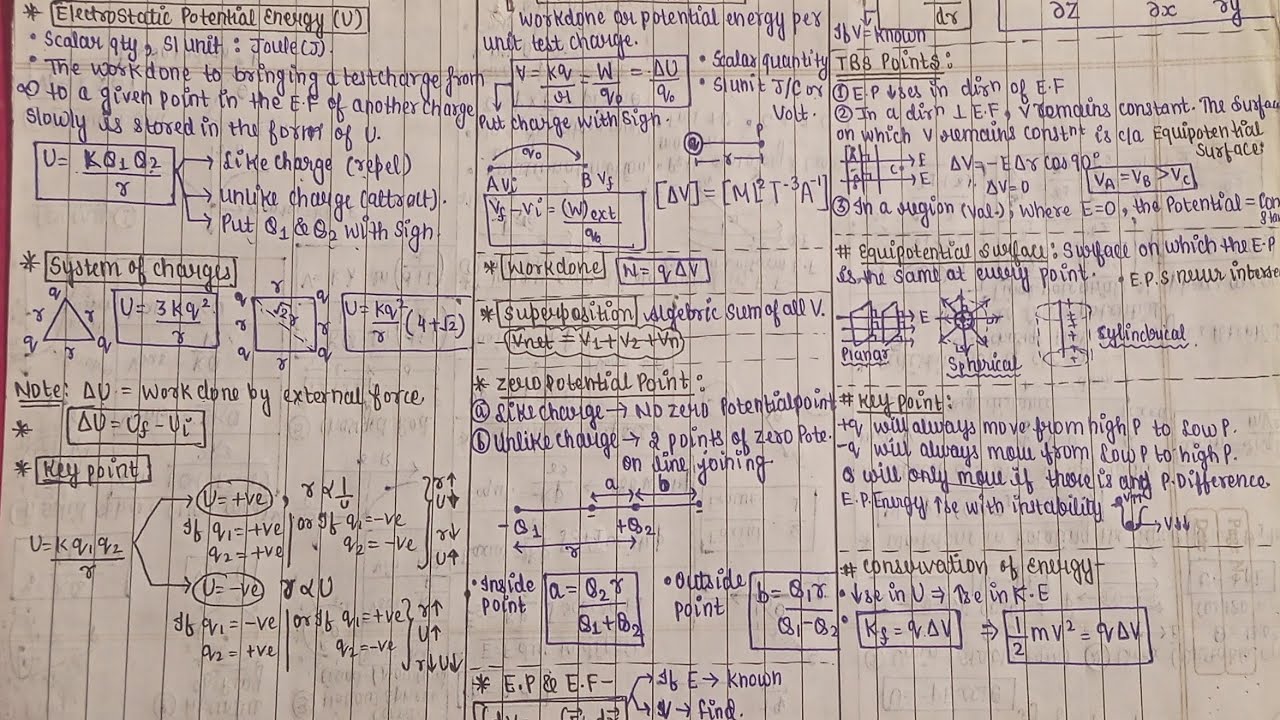 * Electrostatic Potential Energy (U)
• Scalar qty, SI unit : Joule(J).
• The workdone to bringing a testcharge from
∞ to a given point in the E.F of another charge
slowly is stored in the form of U.
U = KQ1Q2 / r
→ Like charge (repel)
→ unlike charge (attract).
→ Put Q1 & Q2 with Sign.
* System of charges
q r r q r q
U = 3Kq² / r
q r q r √2r r q r q
U = Kq² / r (4+√2)
Note: ΔU = Work done by external force
* ΔU = Uf - Ui
* Key point
U = Kq1q2 / r
U = +ve, r ∝ 1/U
If q1 = +ve | or If q1 = -ve
q2 = +ve | q2 = -ve
r↑ U↓
r↓ U↑
U = -ve r ∝ U
If q1 = -ve | or If q1 = +ve
q2 = +ve | q2 = -ve
r↑ U↑
r↓ U↓
workdone or potential energy per
unit test charge.
V = Kq / r = W / q0 = ΔU / q0
• Scalar quantity
• SI unit J/C or
Volt.
Put charge with Sign.
q0
A Vi B Vf
Q r P
Vf - Vi = (W)ext / q0
[ΔV] = [ML²T⁻³A⁻¹]
* Workdone W = qΔV
* Superposition Algebric sum of all V.
Vnet = V1 + V2 + Vn
* Zero Potential Point:
(a) Like charge → No zero Potential point
(b) Unlike charge → 2 points of zero Pote.
on line joining
a b
-Q1 +Q2
r
• Inside point a = Q2r / Q1+Q2
• Outside point b = Q1r / Q1-Q2
* E.P & E.F-
→ If E → known
→ V → find.
dr
∂z ∂x ∂y
If V = known
TBS Points:
(1) E.P ↓ses in dirn of E.F
(2) In a dirn ⊥ E.F, V remains constant. The Surfac
on which V remains constnt is c/a Equipotential
Surface
A B C E E
ΔV = -EΔr cos90°
∴ ΔV = 0
VA = VB > VC
(3) In a region (vol.), where E=0, the Potential = Con
Stan
# Equipotential Surface: Surface on which the E.P
is the same at every point.
• E.P.S. never interse
E
Planar
Spherical
Cylindrical
# Key Point:
+q will always move from high P to Low P.
-q will always move from Low P to high P.
Q will only move if there is any P. Difference.
E.P. Energy ↑se with instability
→ V↓↓
# Conservation of energy-
• ↓se in U ⇒ ↑se in K.E
• Kf = qΔV ⇒ 1/2 mv² = qΔV